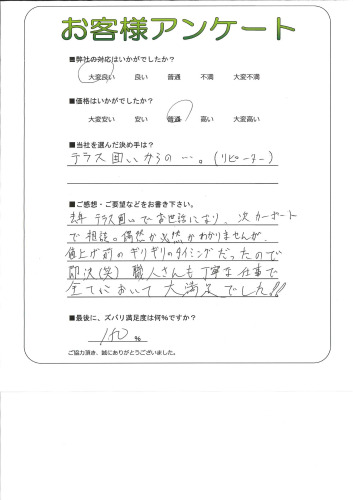 お客様アンケート
■弊社の対応はいかがでしたか？
大変良い 良い 普通 不満 大変不満
■価格はいかがでしたか？
大変安い 安い 普通 高い 大変高い
■当社を選んだ決め手は？
テラス囲いからの…。(リピーター)
■ご感想・ご要望などをお書き下さい。
去年 テラス囲いでお世話になり、次カーポート
で相談。偶然か必然かわかりませんが、
値上げ前のギリギリのタイミングだったので
即決(笑) 職人さんも丁寧な仕事で
全てにおいて大満足でした!!
■最後に、ズバリ満足度は何%ですか？
%
ご協力頂き、誠にありがとうございました。